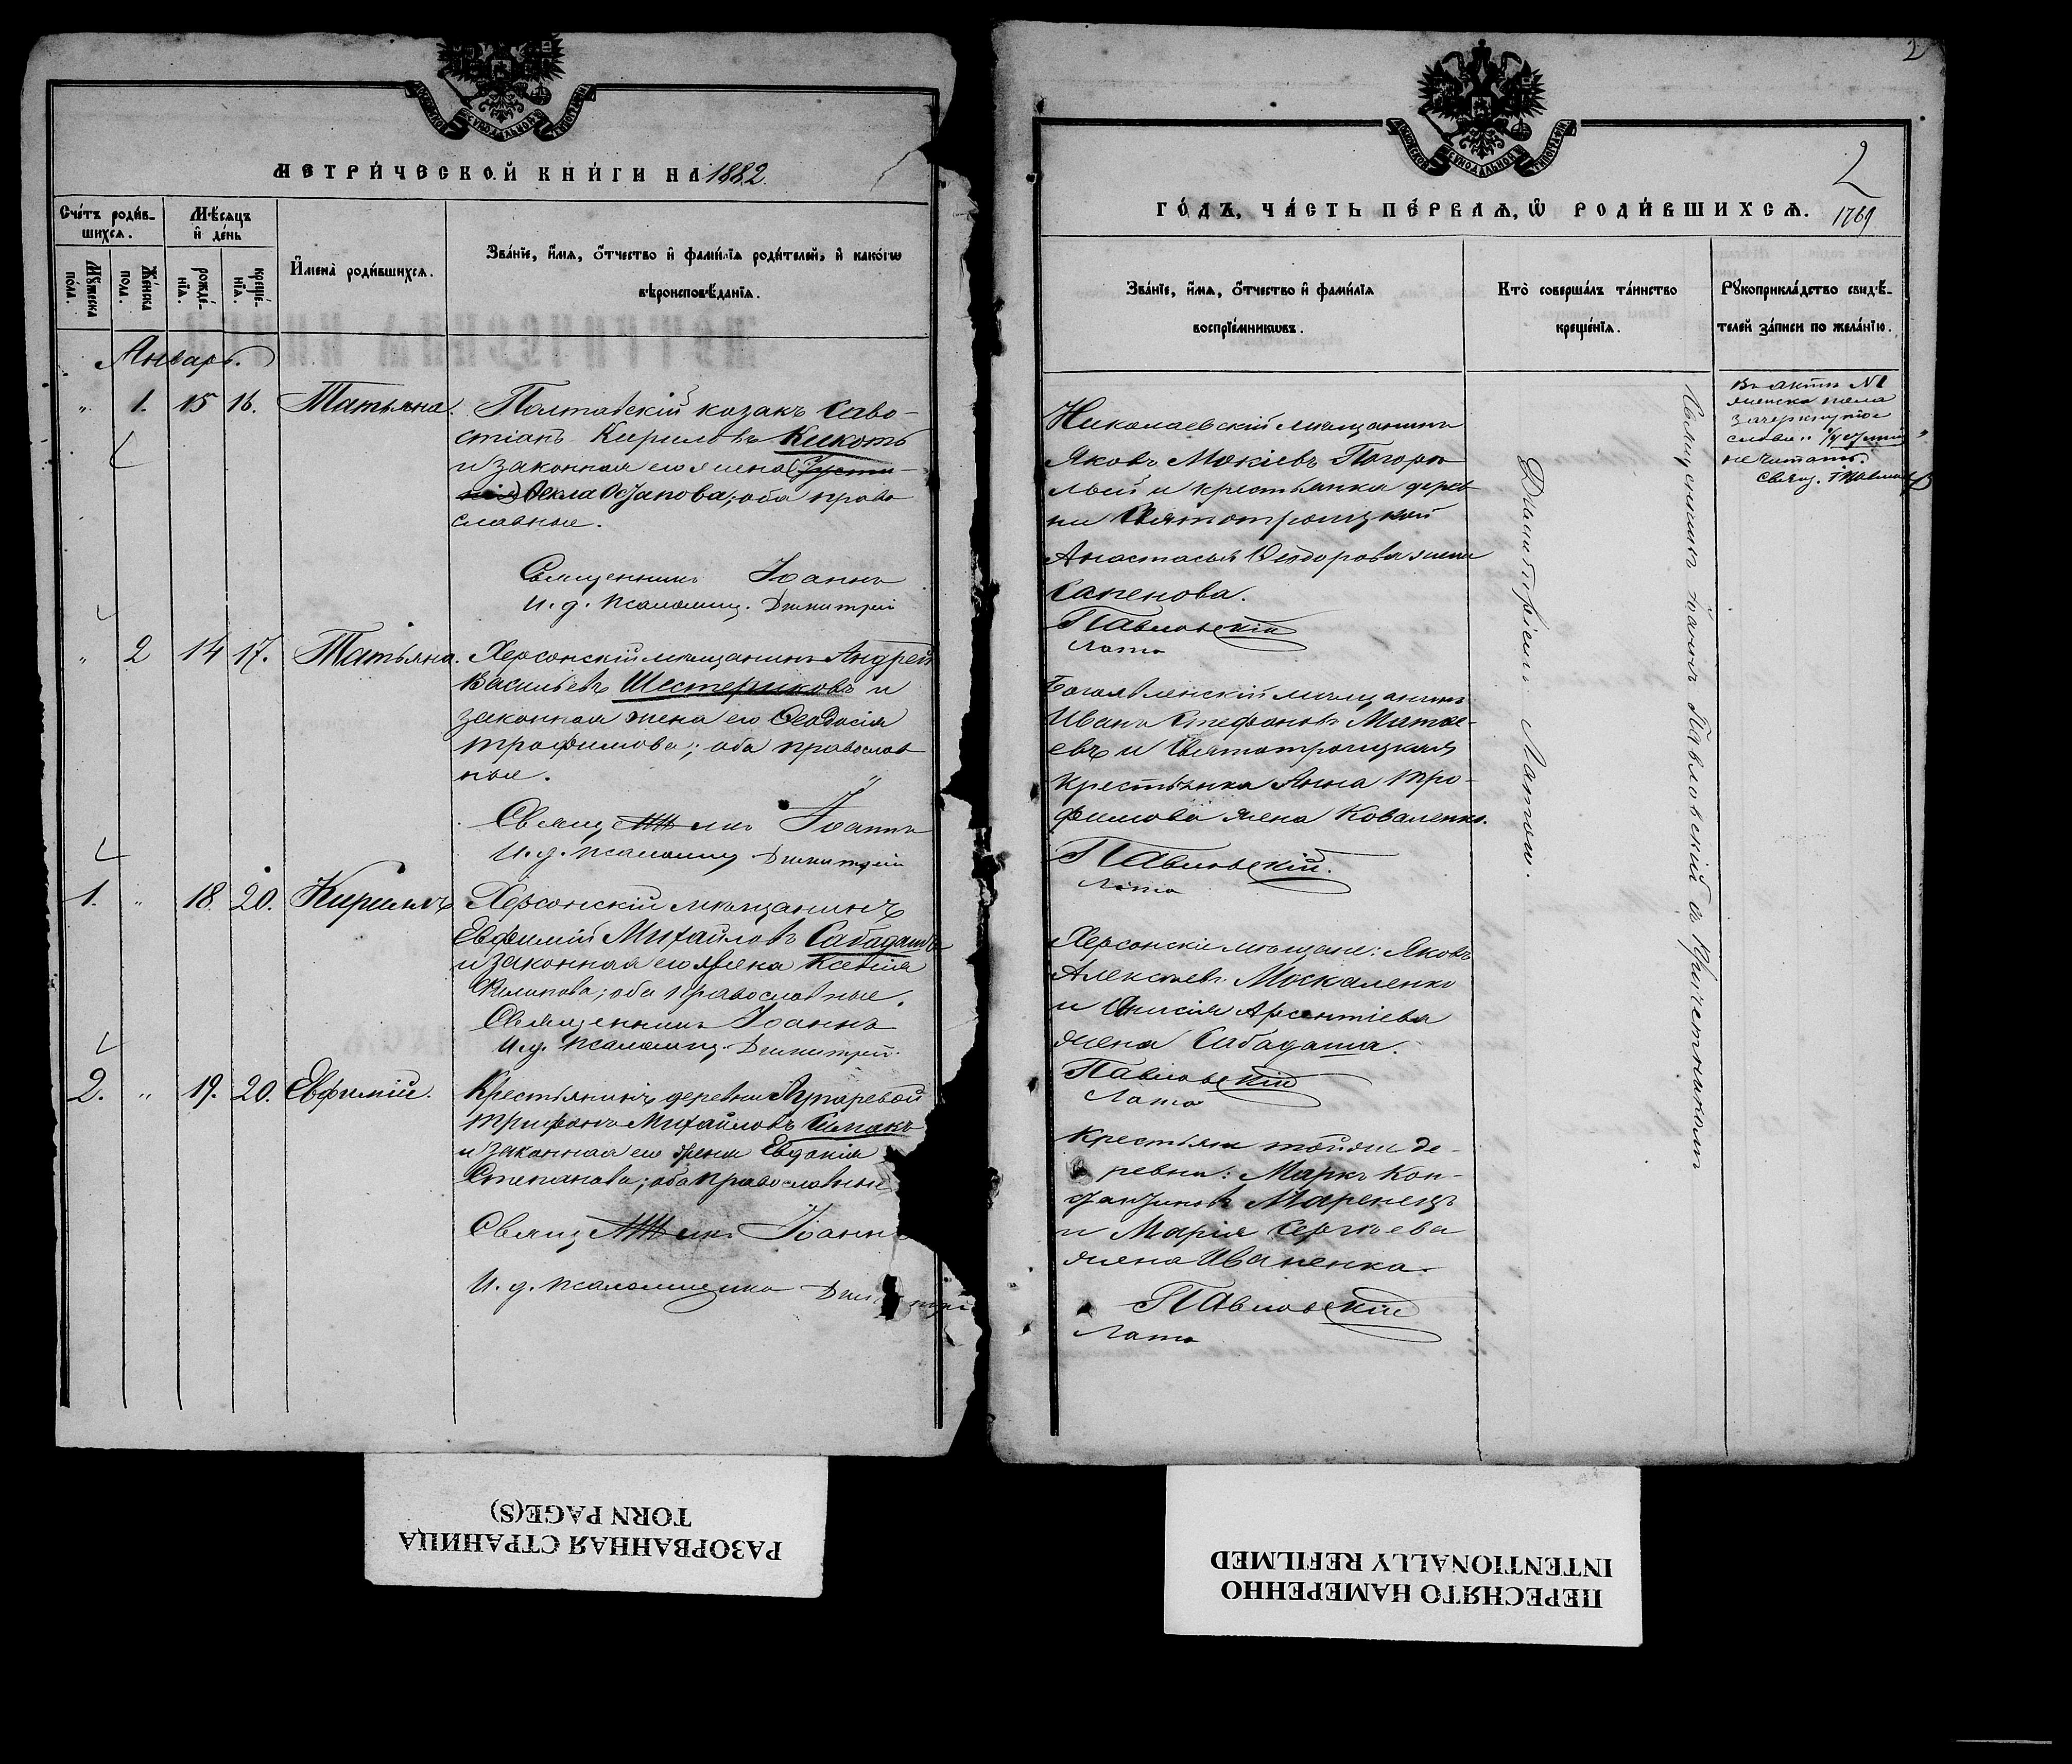 МЕТРИ́ЧЕСКОЙ КНИ́ГИ НА 1882.
Сче́тъ роди́в-
шихсѧ.
Мѣ́сѧцъ
и҆ де́нь
И҆мена̀ роди́вшихсѧ.
Зва́нїе, и҆́мѧ, ѻ҆́тчество и҆ фами́лїѧ роди́телей, и҆ како́гѡ
вѣроисповѣ́данїѧ.
Мꙋ́жеска
по́ла.
Же́нска
пола.
рожде́-
нїѧ.
креще́-
нїѧ.
Январь.
" 1. 15 16. Татьяна. Полтавскій козакъ Саво-
стіанъ Кириловъ Кикоть
и законная его жена
Ѳекла Осіпова; оба право
славные.
Священникъ Іоаннъ
И. д. псаломщ. Димитрій
" 2 14 17. Татьяна. Херсонскій мѣщанинъ Андрей
Васильевъ Шестериковъ и
законная жена его Ѳеодосія
Трофимова; оба православ
ные.
Священникъ Іоаннъ
И. д. псаломщ. Димитрій
1. " 18. 20. Кириллъ Херсонскій мѣщанинъ
Евфимій Михайловъ Сабадашъ
и законная его жена Ксенія
Филипова; оба православные.
Священникъ Іоаннъ
И. д. псаломщ. Димитрій.
2. " 19. 20. Евфимій. Крестьянинъ деревни
Трифонъ Михайловъ Симакъ
и законная его жена Евдокія
Степанова; оба православные
Священникъ Іоанн
И. д. псаломщика Дим трій
2
2
1769
ГО́ДЪ, ЧА́СТЬ ПЕ́РВАѦ, Ѡ҆ РОДИ́ВШИХСѦ.
Зва́нїе, и҆́мѧ, ѻ҆́тчество и҆ фами́лїѧ
воспрїе́мникѡвъ.
Кто̀ соверша́лъ та́инство
креще́нїѧ.
Рꙋкоприкла́дство свидѣ́-
телей за́писи по жела́нїю.
Николаевскій мѣщанинъ
Яковъ Мокіевъ Погорѣ
лый и крестьянка дерев
ни Святотроицкой
Анастасья Ѳеодорова жена
Сапенова.
Павловскій
Лато
Богоявленскій мѣщанинъ
Иванъ Стефановъ Матве-
евъ и Святотроицкая
крестьянка Анна Тро-
фимова жена Коваленко.
Павловскій.
Лато
Херсонскіе мѣщане: Яковъ
Алексѣевъ Москаленко
и Анисія Арсентіева
жена Сабадаша.
Павловскій
Лато
Крестьяне тойже де-
ревни: Маркъ Кон-
стантиновъ Маренецъ
и Марія Сергѣева
жена Иваненка.
Павловскій
Лато
Священникъ Іоаннъ Павловскій съ Причетникомъ
Димитріемъ Латою.
Въ актѣ №1
женска пола
зачеркнутое
слово
не читать.
Свящ. І Павлов
МОСКОВСКОЙ СѴНОДАЛЬНОЙ ТИПОГРАФІИ
МОСКОВСКОЙ СѴНОДАЛЬНОЙ ТИПОГРАФІИ
РАЗОРВАННАЯ СТРАНИЦА
TORN PAGE(S)
ПЕРЕСНЯТО НАМЕРЕННО
INTENTIONALLY REFILMED